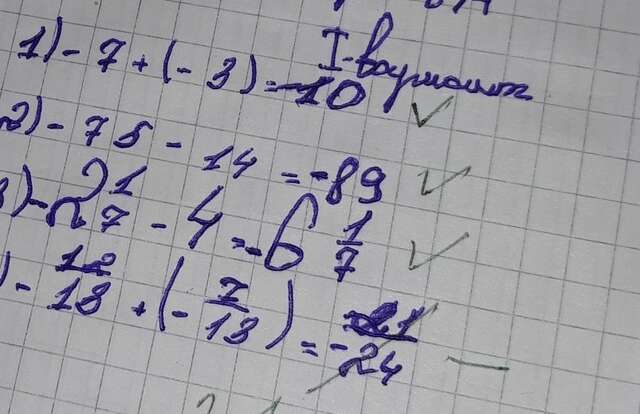 I-вариант
1) - 7 + (- 3) = -10
2) - 75 - 14 = - 89
) - 2 1/7 - 4 = - 6 1/7
) - 12/13 + (- 7/13) = - 21/24